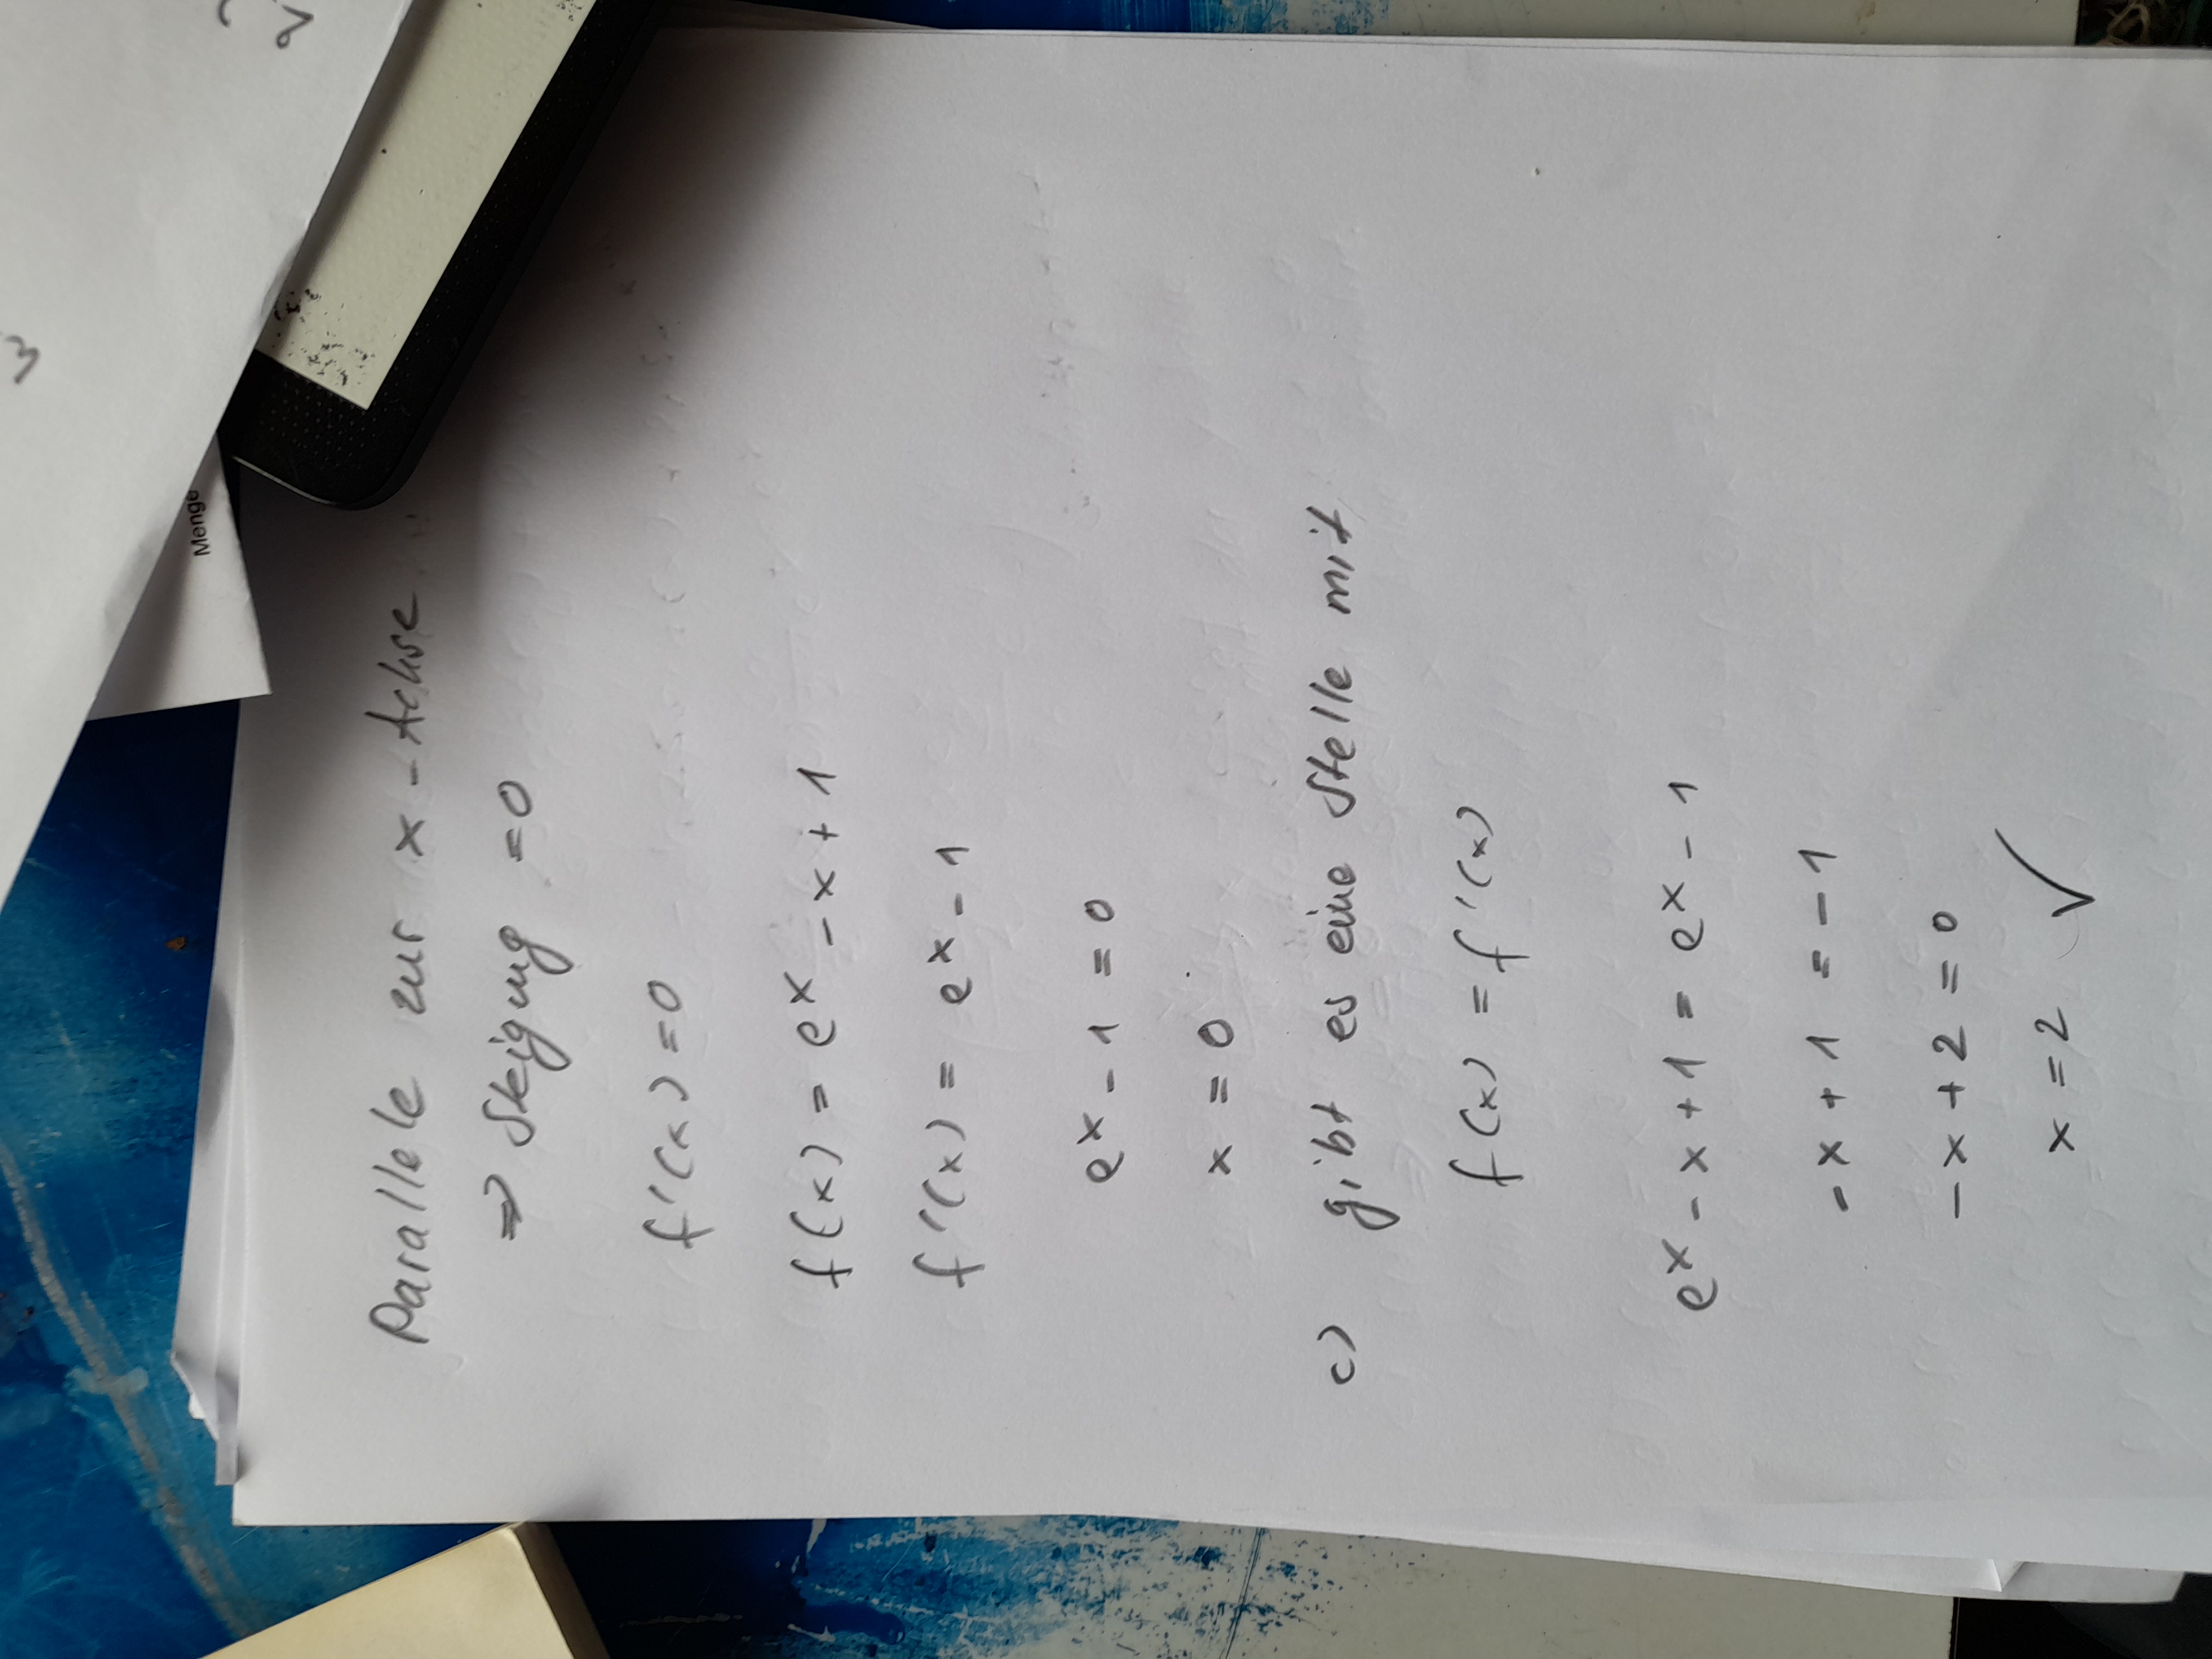 Parallele zur x-Achse
⇒ Steigung =0
f'(x)=0
f(x) = e^x - x + 1
f'(x) = e^x - 1
e^x - 1 = 0
x = 0
c) gibt es eine Stelle mit
f(x) = f'(x)
e^x - x + 1 = e^x - 1
-x + 1 = -1
-x + 2 = 0
x = 2 ✓
Menge
3